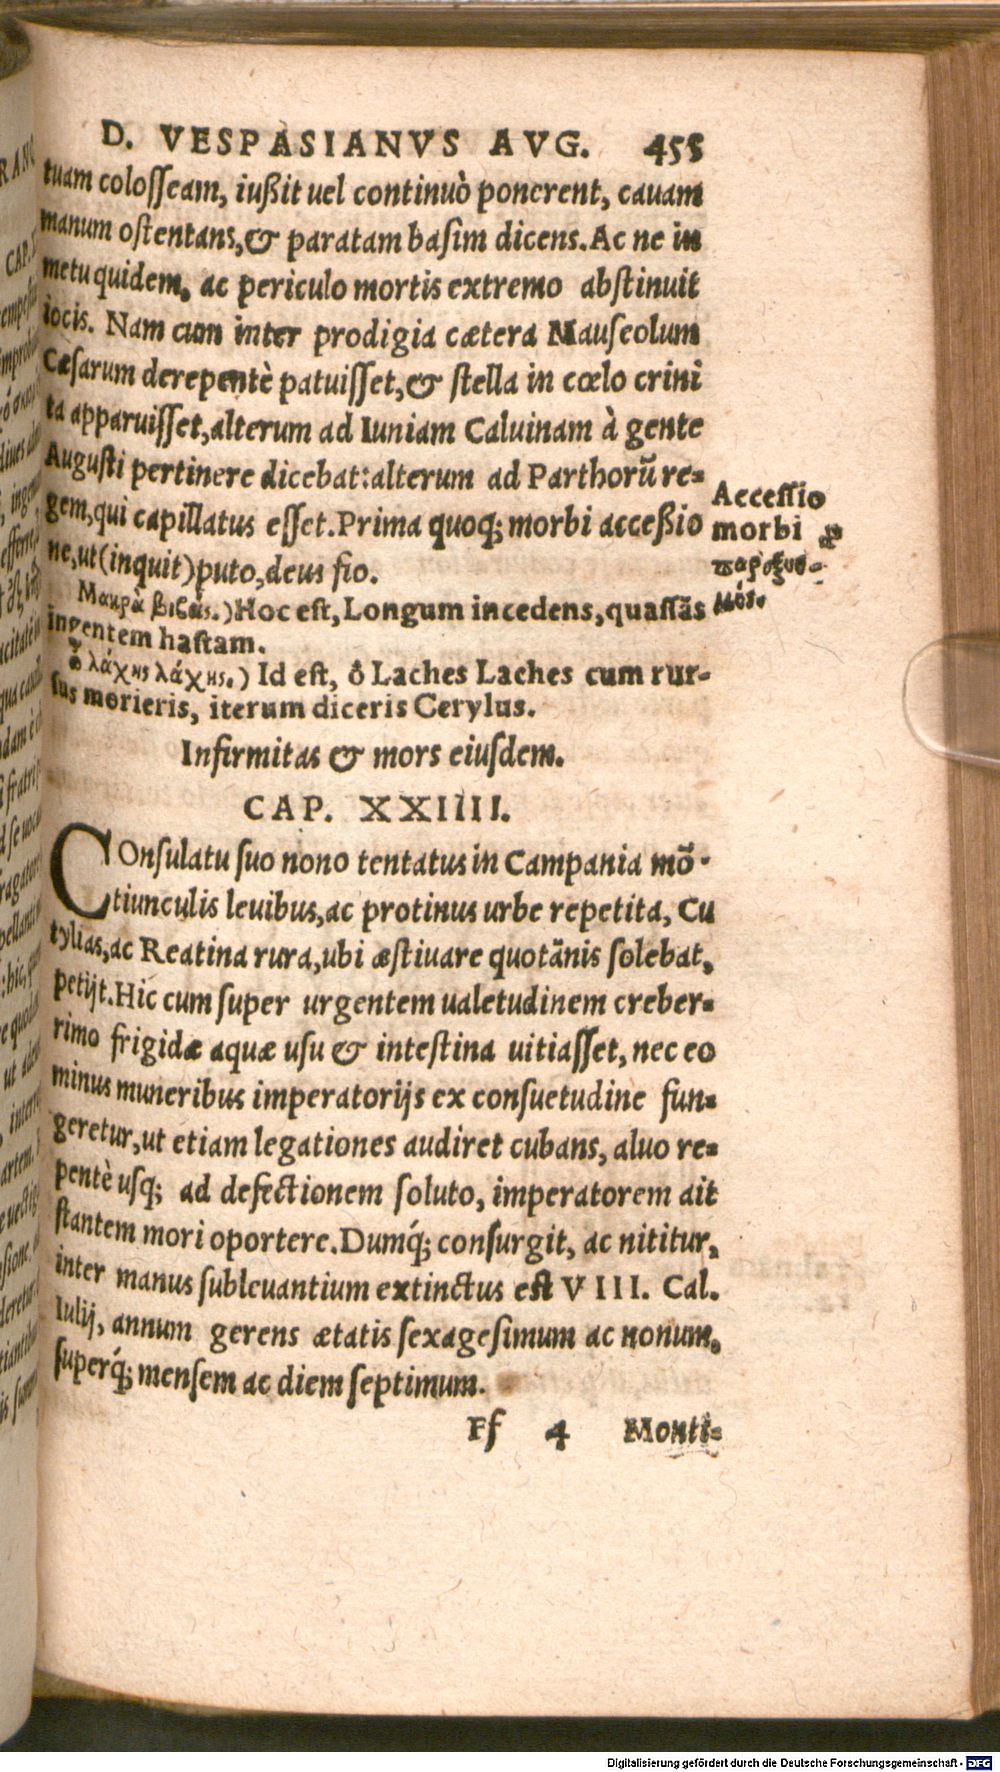 D. VESPASIANVS AVG. 455
tuam colosseam, iußit uel continuò ponerent, cauam
manum ostentans,& paratam basim dicens. Ac ne in
metu quidem, ac periculo mortis extremo abstinuit
iocis. Nam cum inter prodigia cætera Mauseolum
Cæsarum derepentè patuisset,& stella in cœlo crini
ta apparuisset,alterum ad Iuniam Caluinam à gente
Augusti pertinere dicebat:alterum ad Parthorũ re-
gem,qui capillatus esset. Prima quoq; morbi acceßio
ne,ut(inquit)puto,deus fio.
Accessio
morbi
Μακρὰ βιβάς.)Hoc est, Longum incedens, quassãs
ingentem hastam.
ὦ λάχης λάχης.) Id est, ô Laches Laches cum rur-
sus morieris, iterum diceris Cerylus.
Infirmitas & mors eiusdem.
CAP. XXIIII.
COnsulatu suo nono tentatus in Campania mõ-
tiunculis leuibus,ac protinus urbe repetita, Cu
tylias,ac Reatina rura,ubi æstiuare quotãnis solebat,
petijt. Hic cum super urgentem ualetudinem creber-
rimo frigidæ aquæ usu & intestina uitiasset, nec eo
minus muneribus imperatorijs ex consuetudine fun-
geretur,ut etiam legationes audiret cubans, aluo re-
pentè usq; ad defectionem soluto, imperatorem ait
stantem mori oportere. Dumq́; consurgit, ac nititur,
inter manus subleuantium extinctus est VIII. Cal.
Iulij, annum gerens ætatis sexagesimum ac nonum,
superq́; mensem ac diem septimum.
Ff 4 Monti-
Digitalisierung gefördert durch die Deutsche Forschungsgemeinschaft - DFG